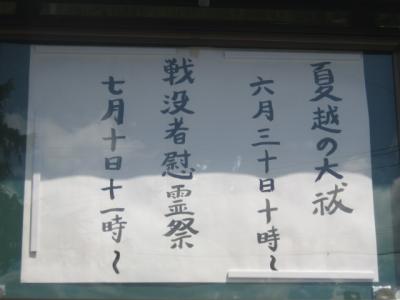 夏越の大祓
六月三十日十時～
戦没者慰霊祭
七月十日十一時～